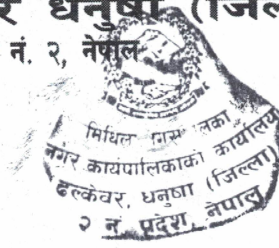 धनुषा (जिल
नं. २, नेपाल
मिथिल
नगर कार्यपालिकाको कार्यालय
ढल्केवर, धनुषा (जिल्ला)
२ नं. प्रदेश, नेपाल